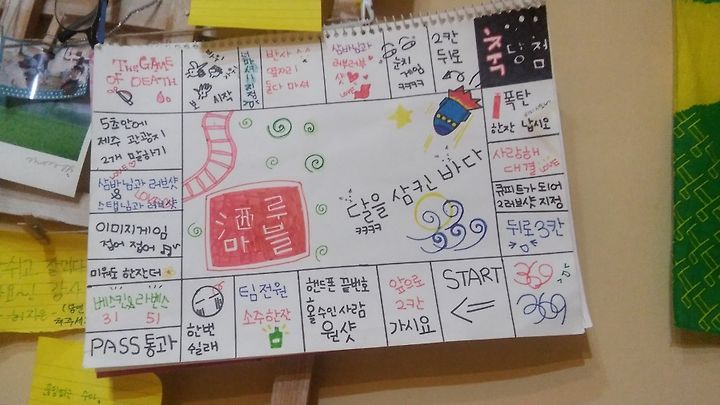 THE GAME
OF DEATH
시작
반사
옆자리
둘다 마셔
삼바님과
러브러브
샷
LOVE
눈치
게임
ㅋㅋㅋㅋ
2칸
뒤로
당
점
5초만에
제주 관광지
2개 말하기
LOVE
삼바님과 러브샷
&
스탭님과 러브샷
이미지게임
접어 접어
미워도 한잔더
베스킨&라빈스
31 51
PASS 통과
한번
쉴래
팀전원
소주한잔
핸드폰 끝번호
홀수인사람
원샷
앞으로
2칸
가시요
START
369
369
뒤로 3칸
큐피트가 되어
2러브샷 지정
사랑해
대결 LOVE
폭탄
한잔 납시오
달을 삼킨 바다
ㅋㅋㅋㅋ
酒 루
마 블